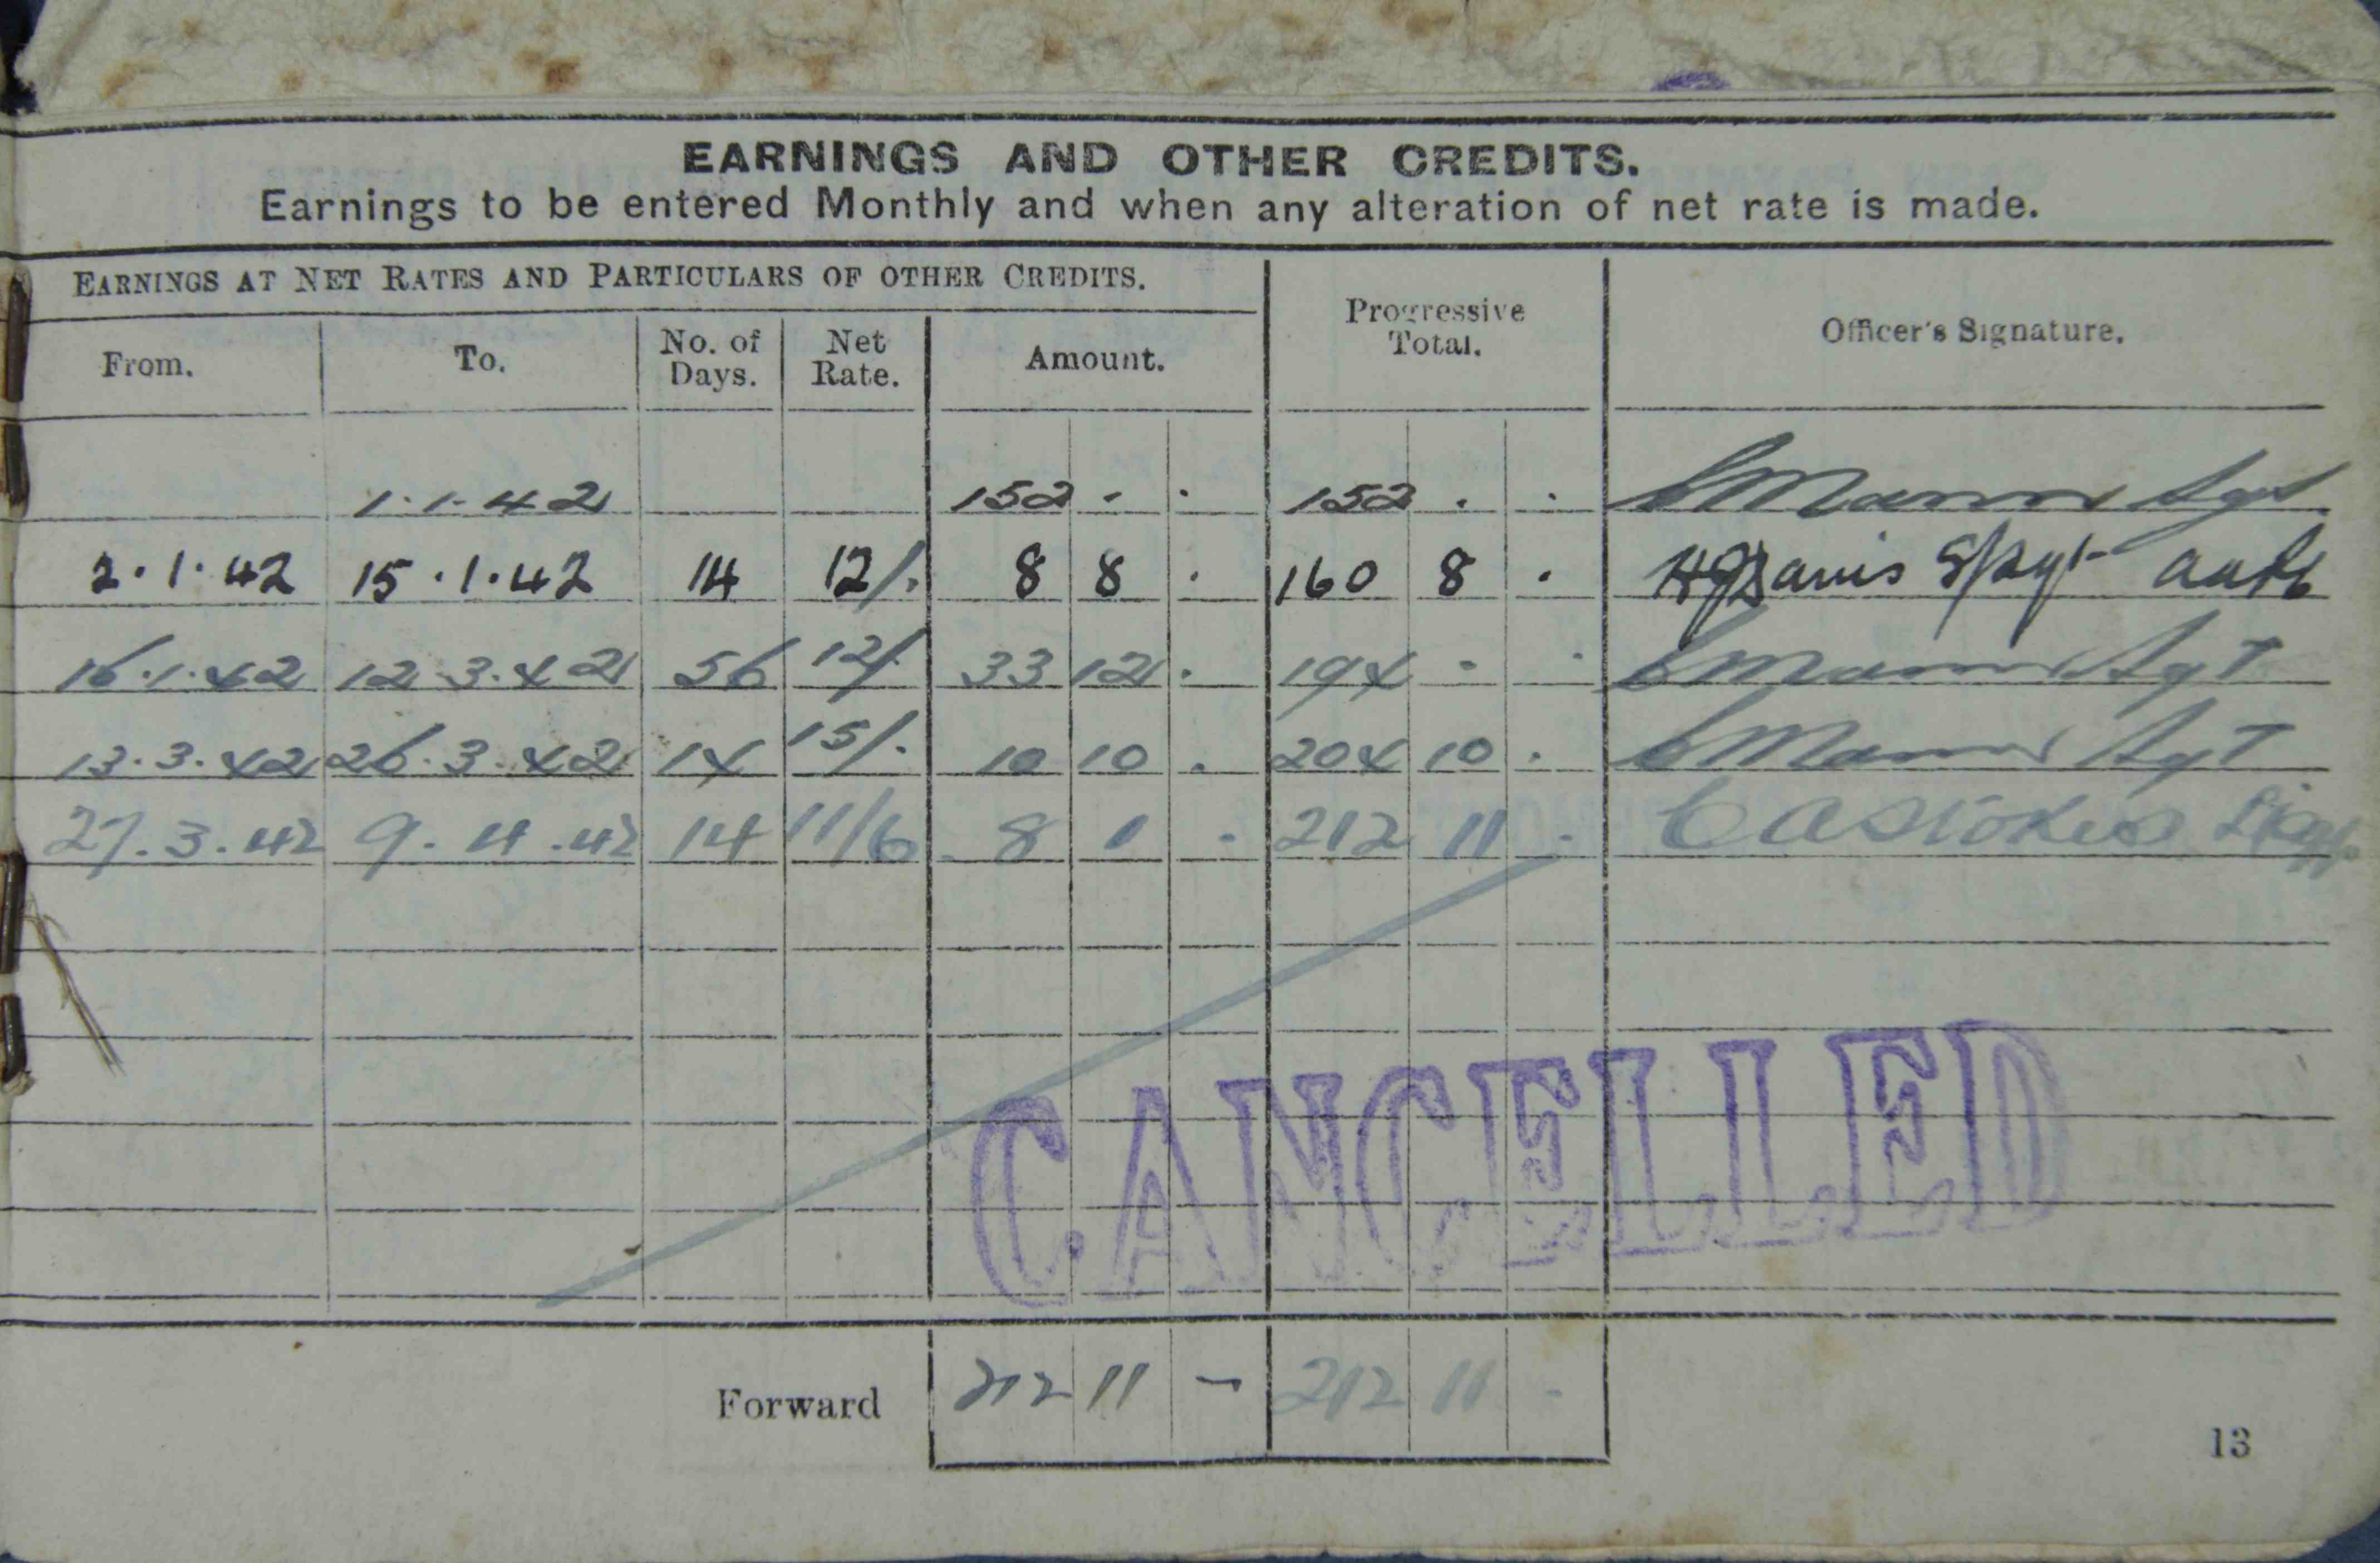 EARNINGS AND OTHER CREDITS.
Earnings to be entered Monthly and when any alteration of net rate is made.
EARNINGS AT NET RATES AND PARTICULARS OF OTHER CREDITS. Progressive Total. Officer's Signature.
From. To. No. of Days. Net Rate. Amount.
1.1.42 152 . . 152 . . Mann Sgt
2.1.42 15.1.42 14 12/. 8 8 . 160 8 . HJDavis S/Sgt
16.1.42 12.3.42 56 12/. 33 12 . 194 - . Mann Sgt
13.3.42 26.3.42 14 15/. 10 10 . 204 10 . Mann Sgt
27.3.42 9.4.42 14 11/6 8 1 - 212 11 - CA Stokes
CANCELLED
Forward 212 11 - 212 11 -
13